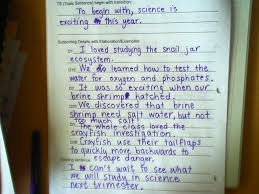 TS (Topic Sentence) begin with transition:
To begin with, science is
exciting this year.
Supporting Details with Elaboration/Examples:
I loved studying the snail jar
ecosystem.
We learned how to test the
water for oxygen and phosphates.
It was so exciting when our
brine shrimp hatched.
We discovered that brine
shrimp need salt water, but not
too much salt!
The whole class loved the
crayfish investigation.
Crayfish use their tail flaps
to quickly move backwards to
escape danger.
I can't wait to see what
we will study in science
next trimester.